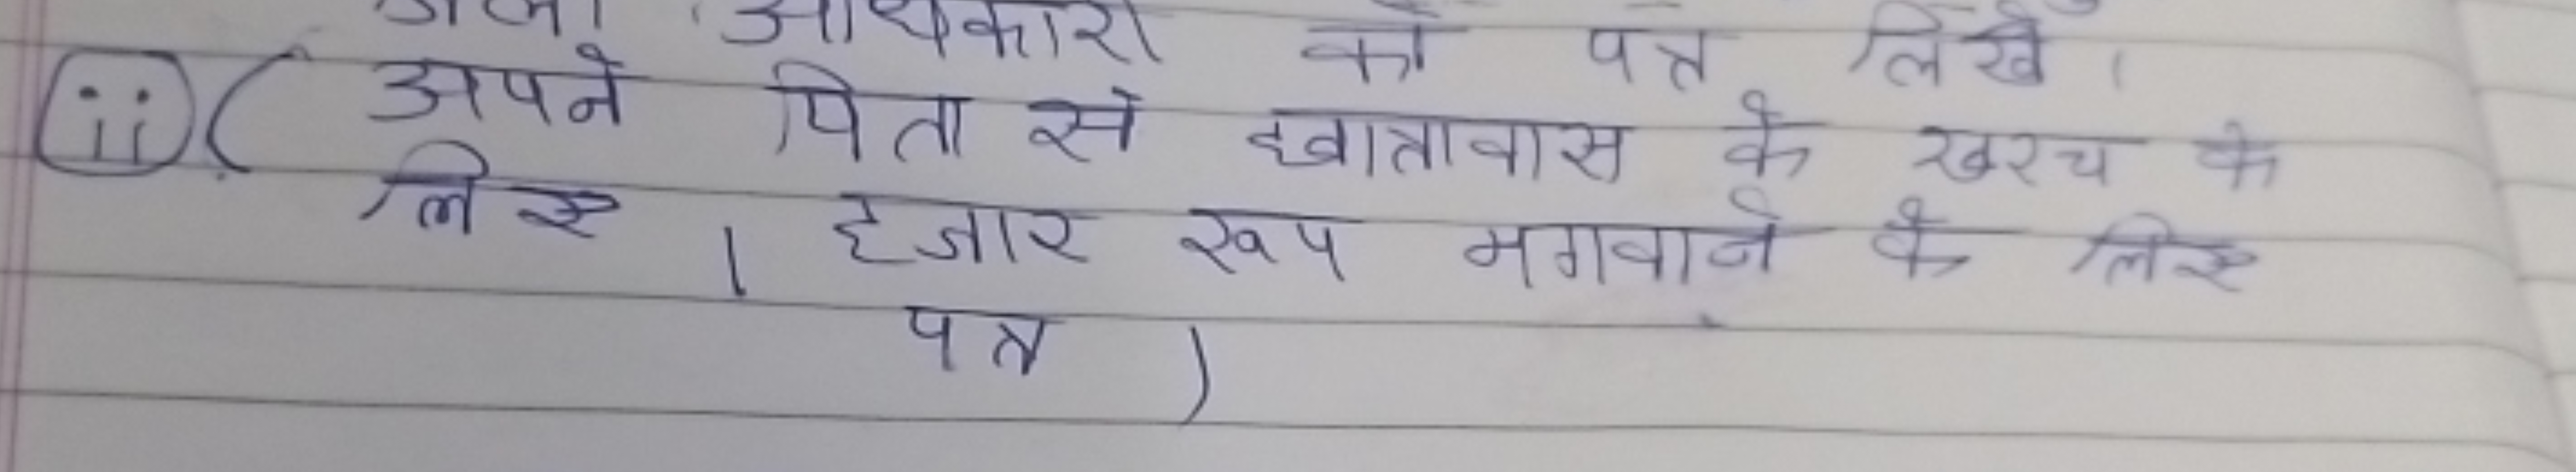 जिला अधिकारी को पत्र लिखें।
ii ( अपने पिता से छात्रावास के खरच के
लिए 1 हजार रूप मगवाने के लिए
पत्र )